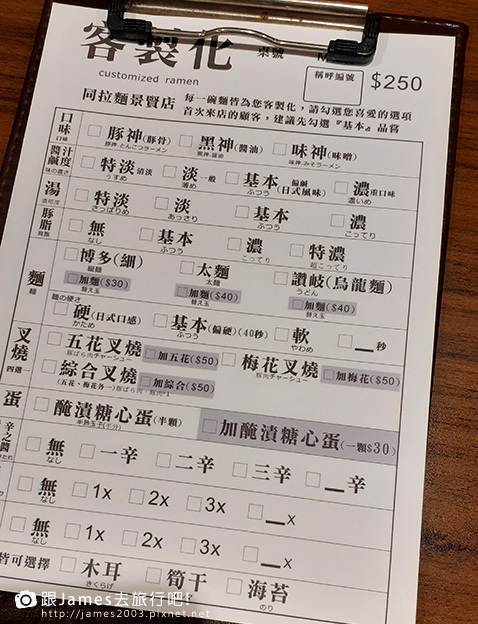 客製化 桌號
customized ramen 稱呼編號 $250
同拉麵景賢店 每一碗麵皆為您客製化，請勾選您喜愛的選項
首次來店的顧客，建議先勾選『基本』品嘗
口味 豚神(豚骨) 黑神(醬油) 味神(味噌)
口味 豚神.とんこつラーメン 味神.みそラーメン
醬汁鹹度 特淡清淡 淡一般 基本偏鹹(日式風味) 濃重口味
味の濃さ うすめ 薄め ふつう 濃いめ
湯 特淡 淡 基本 濃
濃度 さっぱりめ あっさり ふつう こってり
豚脂 無 基本 濃 特濃
背脂 なし ふつう こってり 超こってり
麵 博多(細) 太麵 讚岐(烏龍麵)
麺 細麺 太麺 うどん
加麵($30) 加麵($40) 加麵($40)
替え玉 替え玉 替え玉
麺の硬さ 硬(日式口感) 基本(偏硬)(40秒) 軟 __秒
かため ふつう やわめ
叉燒 五花叉燒 加五花($50) 梅花叉燒 加梅花($50)
豚ばら肉チャーシュー 豚肉チャーシュー
四選一 綜合叉燒 加綜合($50)
(五花、梅花各一)豚ばら肉、豚肉*1
蛋 醃漬糖心蛋(半顆) 加醃漬糖心蛋(一顆$30)
半熟玉子(半分)
辛之醬 無 一辛 二辛 三辛 __辛
なし
無 1x 2x 3x __x
なし
無 1x 2x 3x __x
なし
皆可選擇 木耳 筍干 海苔
きくらげ のり
跟James去旅行吧!
http://james2003.pixnet.net